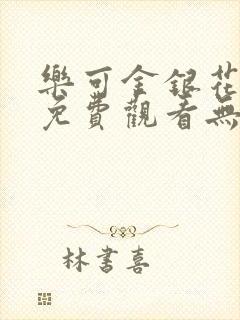 樂可金銀花
免費觀看無
林書喜